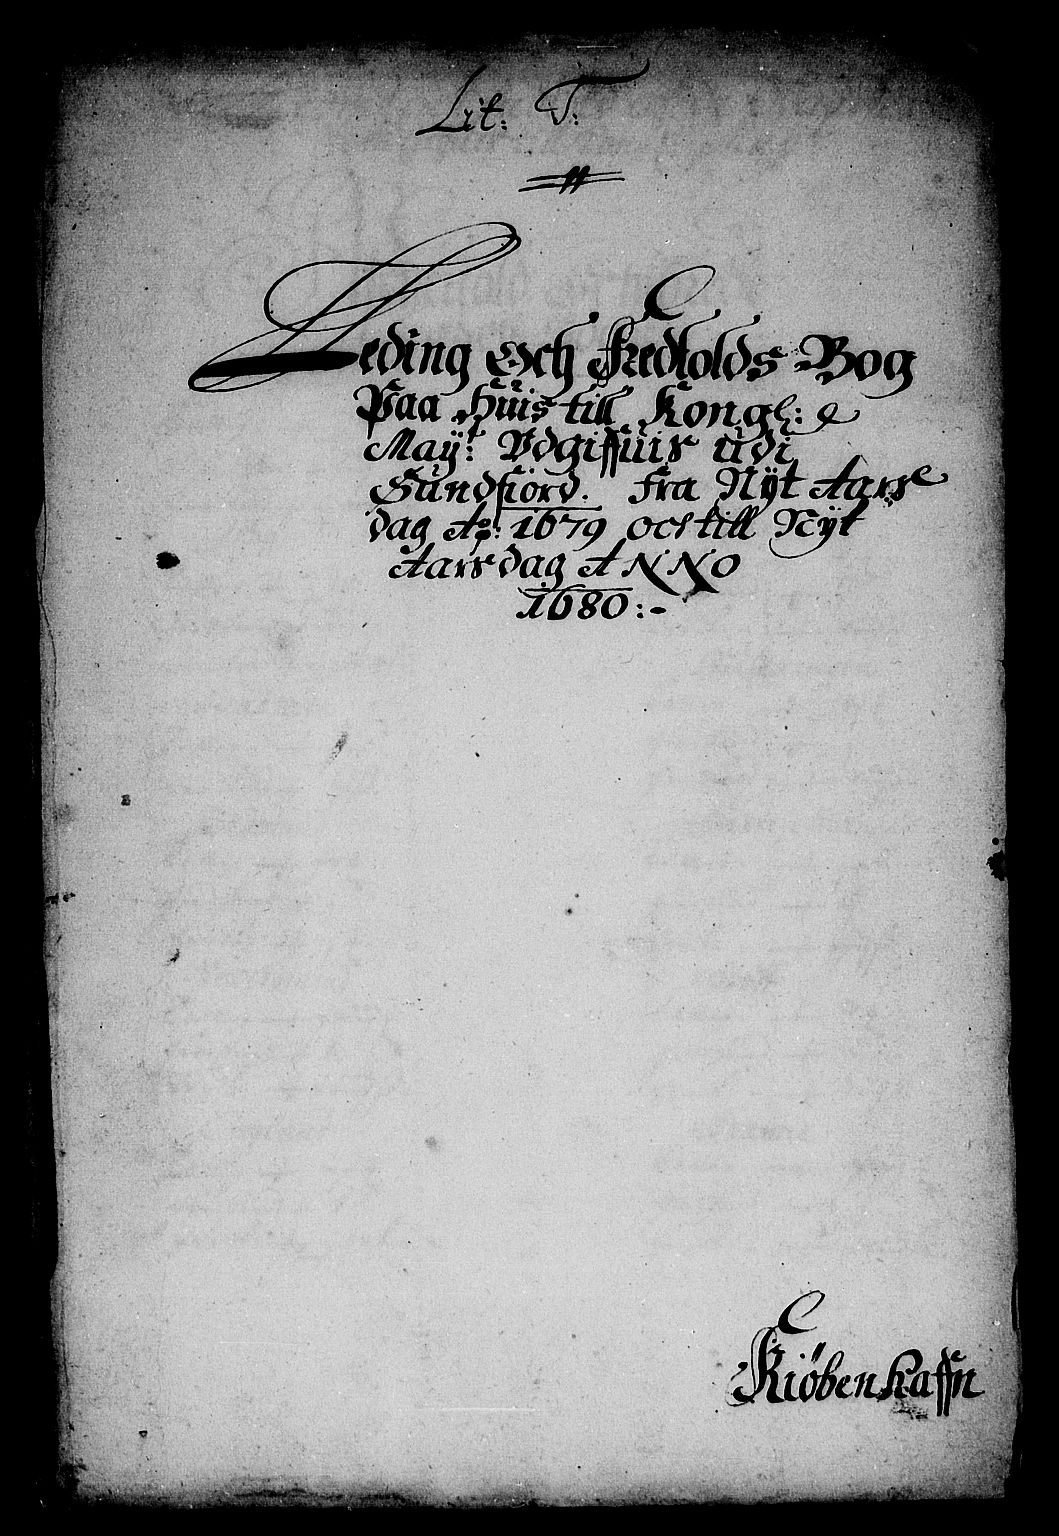 Lit: T:
Leding Och Fredtolds Bog
Paa Huis till Kongl:e
May:t Vdgiffuis udi
Sundfiord. Fra Nyt Aars
dag Ao: 1679 och till Nyt
Aarsdag ANNO
1680:-
Kiöbenhaffn